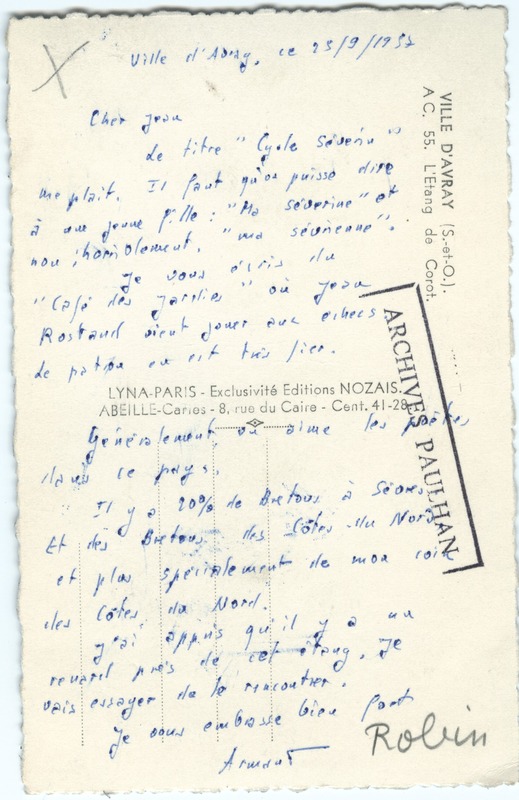 Ville d'Avray, ce 25/9/1957
Cher Jean
Le titre "Cycle Séverin"
me plait. Il faut qu'on puisse dire
à une jeune fille : "Ma séverine" et
non, horriblement, "ma sévrienne".
Je vous écris du
"Café des Jardies" où Jean
Rostand vient jouer aux échecs
Le patron en est très fier.
Généralement, on aime les poètes
dans ce pays.
Il y a 20% de Bretons à Sèvres
Et des Bretons des Côtes-du-Nord
et plus spécialement de mon coin
des Côtes du Nord.
J'ai appris qu'il y a un
renard près de cet étang. Je
vais essayer de le rencontrer.
Je vous embrasse bien fort
Armand
Robin
VILLE D'AVRAY (S.-et-O.).
A C. 55. L'Etang de Corot.
ARCHIVES PAULHAN
LYNA-PARIS - Exclusivité Editions NOZAIS.
ABEILLE-Cartes - 8, rue du Caire - Cent. 41-28